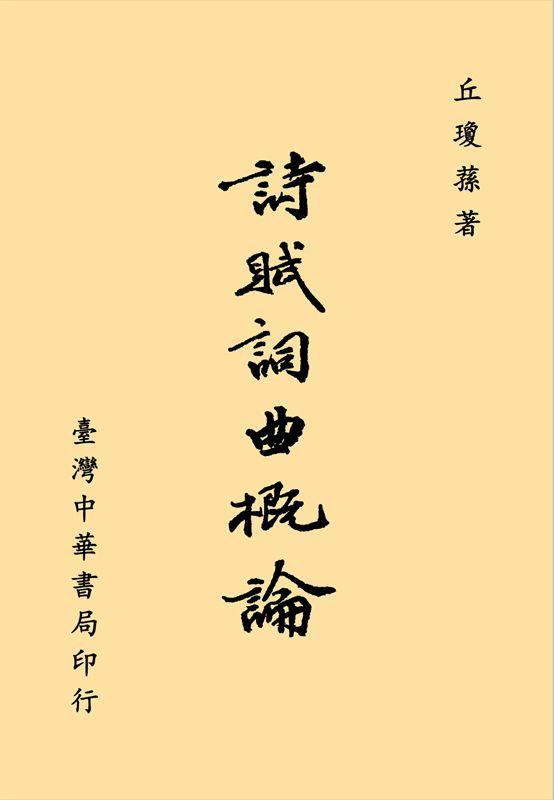 丘瓊蓀著
詩賦詞曲概論
臺灣中華書局印行